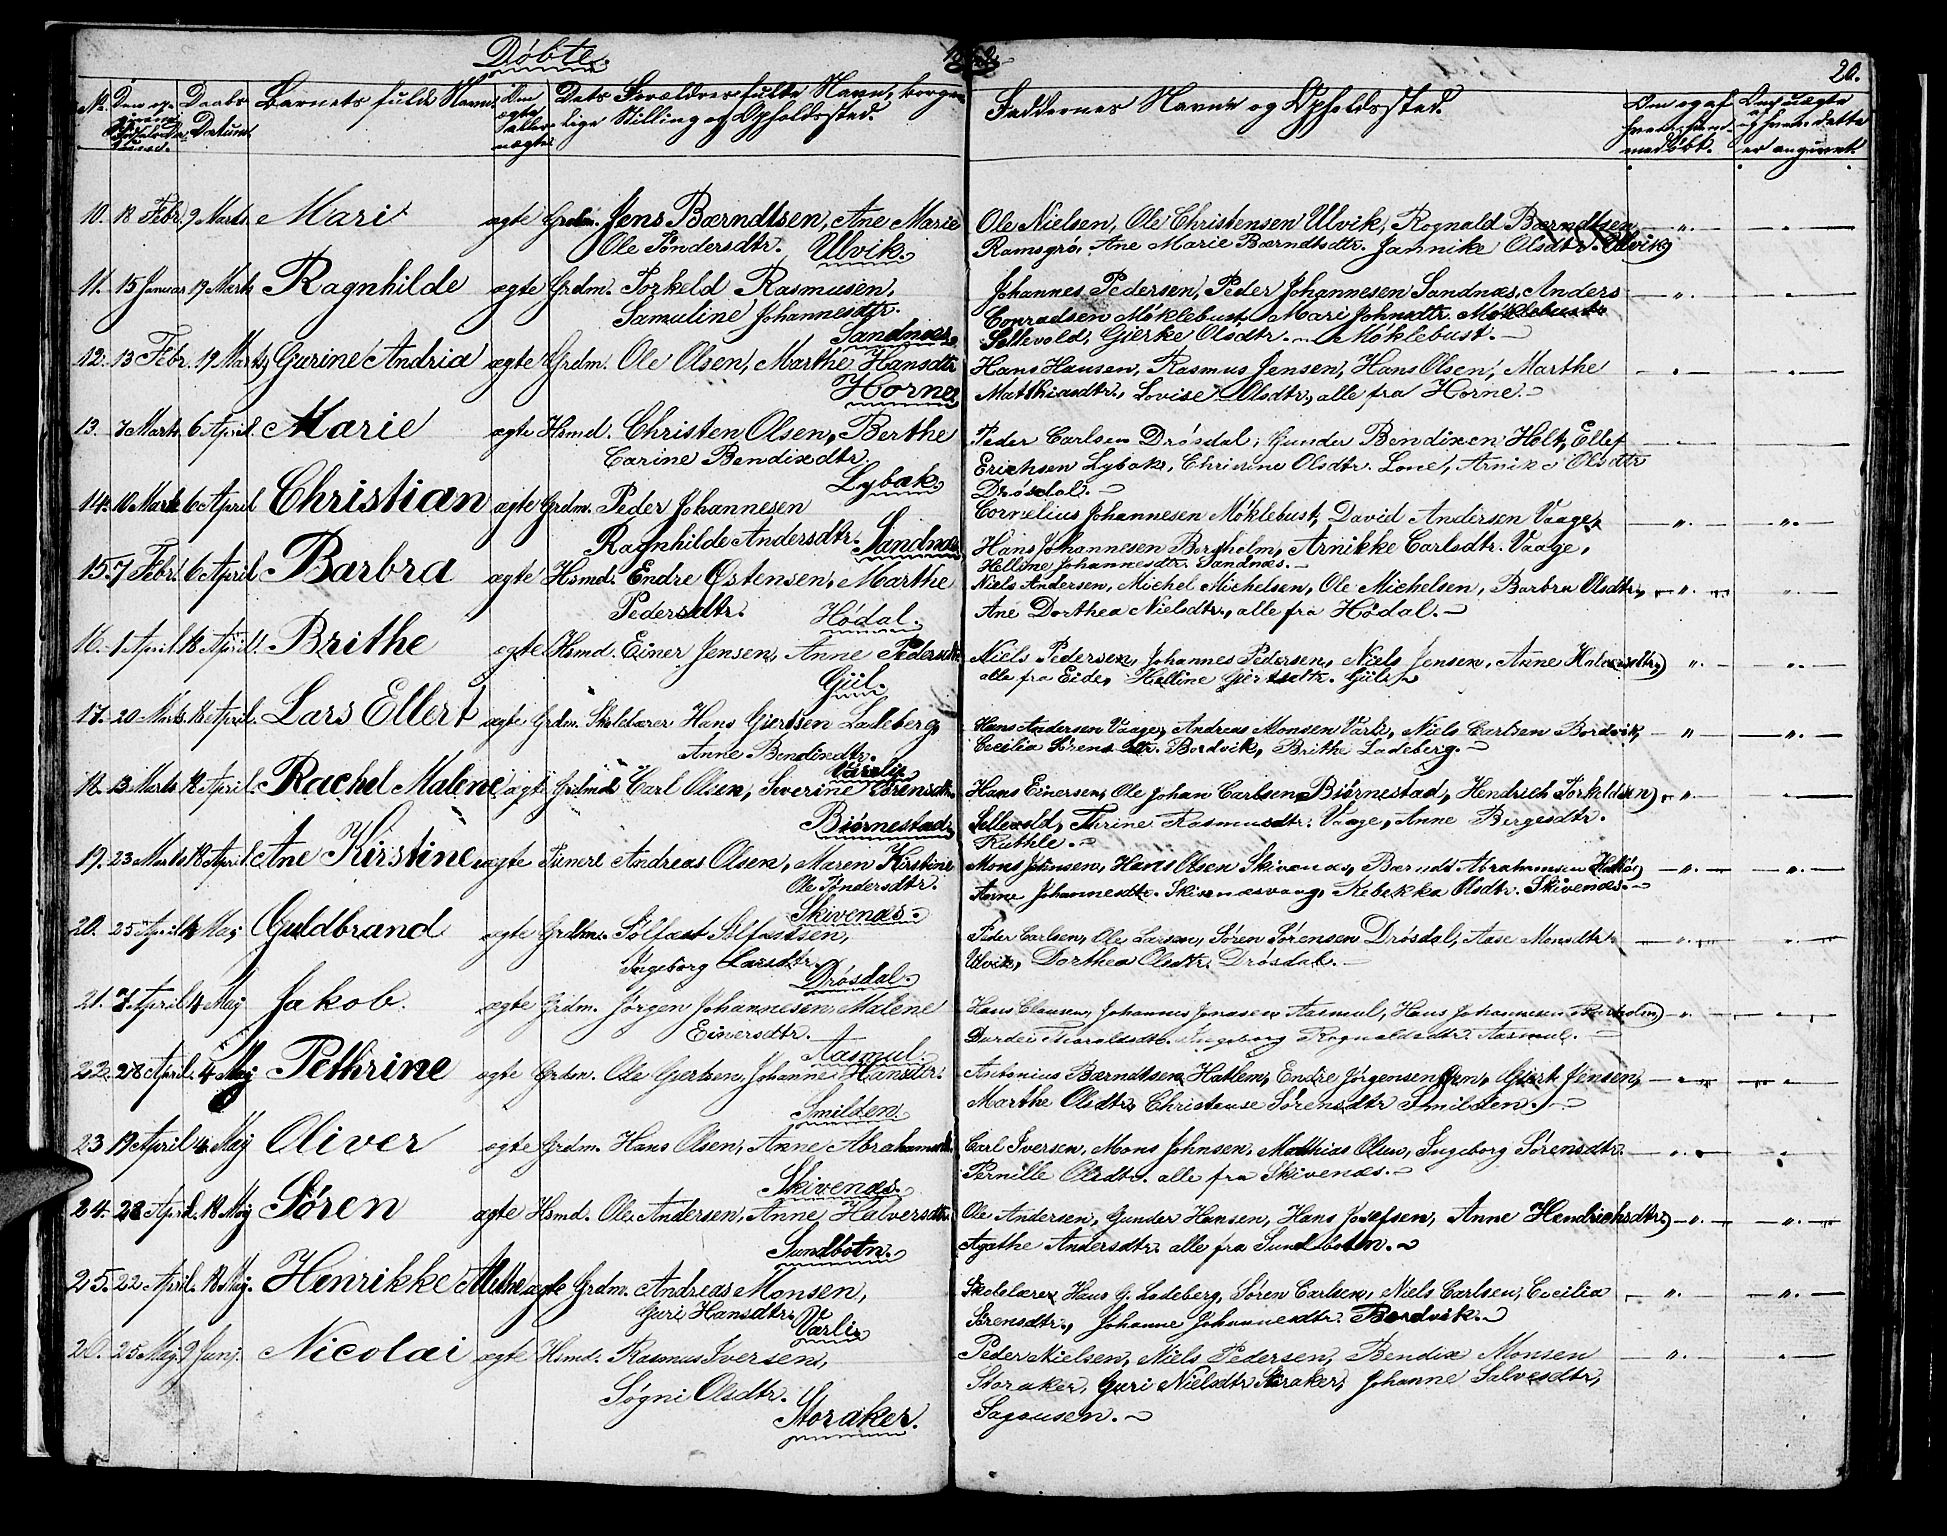 Døbte.
20.
No.
Daabs Datum.
Barnets fulde Navn.
Forældres fulde Navn, borger-
lige Stilling og Opholdssted.
Faddernes Navn og Opholdssted.
Om og af hvem hjem-
medøbt.
Om uægte og hvem dette
er angivet.
10. 18 Febr. 9 Marts. Mari ægte Grdm. Jens Bærndtsen, Ane Marie
Ole Tøndersdtr. Ulvik.
Ole Nielsen, Ole Christensen Ulvik, Rognald Bærndtsen
Ramsgrø, Ane Marie Bærndtsdtr. Jannike Olsdtr. Ulvik
11. 15 Januar 19 Marts Ragnhilde ægte Grdm. Torkeld Rasmusen,
Samuline Johannesdtr.
Sandnæs.
Johannes Pedersen, Peder Johannesen Sandnæs, Anders
Conradsen Møklebust Mari Johnsdtr. Møklebust
Sellevold, Gierke Olsdtr. Møklebust.
12. 13 Febr. 19 Marts, Gurine Andria ægte Grdm. Ole Olsen, Marthe Hansdtr
Horne
Hans Hansen, Rasmus Jensen, Hans Olsen, Marthe
Matthiasdtr., Lovise Olsdtr., alle fra Horne.
13. 7 Marts 6 April. Marie ægte Hsmd. Christen Olsen, Berthe
Carine Bendixdtr.
Lybak.
Peder Carlsen Drøsdal, Gunder Bendixen Holt, Ellef
Erichsen Lybak, Christine Olsdtr. Lone, Olsdtr
Drøsdal.
14. 10 Marts 6 April Christian ægte Grdm. Peder Johannesen
Ragnhilde Andersdtr. Sandnæs
Cornelius Johannesen Møklebust, David Andersen Vaage,
Hans Johannesen Borgholm, Arnikke Carlsdtr. Vaage,
Helline Johannesdtr. Sandnæs.
15. 7 Febr. 6 April. Barbra ægte Hsmd. Endre Østensen, Marthe
Pedersdtr. Hødal.
Niels Andersen, Michel Michelsen, Ole Michelsen, Barbra Olsdtr.,
Ane Dorthea Nielsdtr., alle fra Hødal.
16. 1 April. 18 April. Brithe ægte Hsmd. Einer Jensen, Anne Pedersdtr.
Giil.
Niels Pedersen, Johannes Pedersen, Niels Jensen, Anne Halvorsdtr.
alle fra Eide, Helline Giertsdtr. Giil.
17. 20 Marts. 18 April. Lars Ellert ægte Grdm. Skolelærer Hans Giertsen Ladeberg
Anne Bendixdtr.
Værlie
Hans Andersen Vaage, Andreas Monsen Værli, Niels Carlsen Bordvik,
Cecilia Sørensdtr. Bordvik, Brithe Ladeberg.
18. 13 Marts 18 April. Rachel Malene ægte Grdmd. Carl Olsen, Severine Sørensdtr.
Biørnestad
Hans Einersen, Ole Johan Carlsen Biørnestad, Hendrich Torkildsen
Sellevold, Thrine Rasmusdtr. Vaage, Anne Bergesdtr.
Ruthle.
19. 23 Marts 18 April. Ane Kirstine ægte Andreas Olsen, Maren Kirstine
Ole Tøndersdtr.
Skivenæs.
Mons Johnsen, Hans Olsen Skivenæs, Bærndt Abrahamsen
Anne Johannesdtr. Skivenæsvaag, Rebekka Olsdtr. Skivenæs.
20. 25 April 4 Maj Guldbrand ægte Grdm. Sølfæst Sølfæstsen,
Ingeborg Larsdtr.
Drøsdal.
Peder Carlsen, Ole Larsen, Søren Sørensen Drøsdal, Aase Monsdtr.
Ulvik, Dorthea Olsdtr. Drøsdal.
21. 7 April 4 Maj Jakob. ægte Grdm. Jørgen Johannesen, Malene
Einersdtr.
Aasmul.
Hans Clausen, Johannes Jonasen Aasmul, Hans Johannesen
Thoraldsdtr. Ingeborg Rognaldsdtr. Aasmul.
22. 28 April. 4 Maj Pethrine ægte Grdm. Ole Gertsen, Johanne Hansdtr.
Smilden.
Antonius Bærndtsen Hatlem, Endre Jørgensen Øen, Giert Jensen,
Marthe Olsdtr, Christense Sørensdtr Smilden.
23 19 April 4 Maj Oliver ægte Grdm. Hans Olsen, Anne Abrahamsdtr
Skivenæs.
Carl Iversen, Mons Johnsen, Matthias Olsen, Ingeborg Sørensdtr.
Pernille Olsdtr. alle fra Skivenæs.
24. 28 April. 18 Maj Søren ægte Hsmd. Ole Andersen, Anne Halversdtr.
Sundbotn.
Ole Andersen, Gunder Hansen, Hans Josefsen, Anne Hendrichsdtr.
Agathe Andersdtr. alle fra Sundbotten.
25. 22 April. 18 Maj. Henrikke Methe ægte Grdm. Andreas Monsen,
Guri Hansdtr.
Værlie
Skolelærer Hans G. Ladeberg, Søren Carlsen, Niels Carlsen, Cecilia
Sørensdtr., Johanne Johannesdtr. Bordvik.
26. 25 Maj. 9 Junj. Nicolai ægte Hsmd. Rasmus Iversen,
Søgni Olsdtr.
Storaker.
Peder Nielsen, Niels Pedersen, Bendix Monsen
Storaker, Guri Nielsdtr Storaker, Johanne Salvesdtr,
Sagousen.